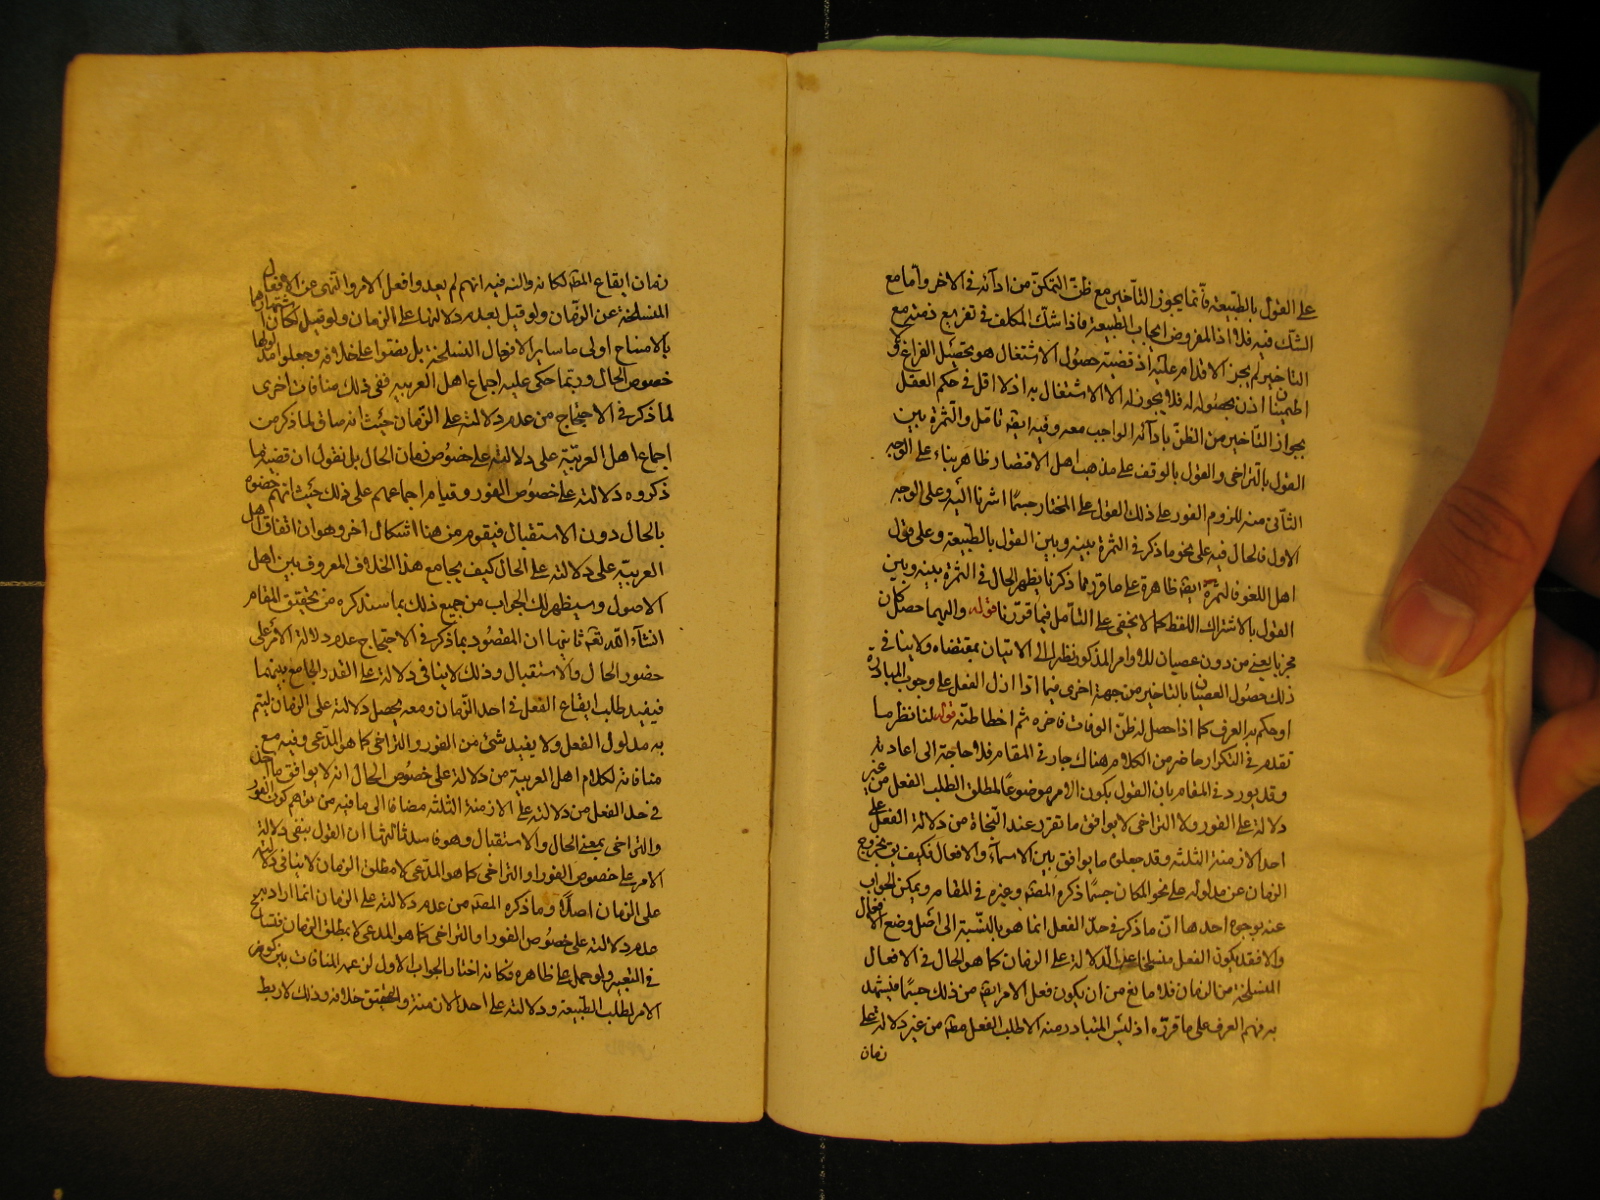 على القول بالطبيعة فانما يجوز التأخير مع ظن التمكن من ادائه في الاخر واما مع
الشك فيه فلا اذ المفروض ايجاب الطبيعة فاذا شك المكلف في تفريغ ذمته مع
التاخير لم يجز الاقدام عليه اذ قضية حصول الاشتغال هو تحصيل الفراغ ولو
اطمينانا اذن بحصوله له فلا يجوز له الا الاشتغال به اذ لا اقل في حكم العقل
بجواز التأخير من الظن بادائه الواجب معه وفيه ايضا تامل والثمرة بين
القول بالتراخي والقول بالوقف على مذهب اهل الاقتصار ظاهر بناء على الوجه
الثاني منه للزوم الفور على ذلك القول على المختار حسبما اشرنا اليه وعلى الوجه
الاول فالحال فيه على نحو ما ذكر في الثمرة بينه وبين القول بالطبيعة وعلى قول
اهل اللغو فالثمرة ايضا ظاهرة على ما قررنا مما ذكرنا يظهر الحال في الثمرة بينه وبين
القول بالاشتراك اللفظ كما لا يخفى على التأمل فيما قررنا قوله وايهما حصل كان
مجزيا يعني من دون عصيان للاوامر المذكور نظرا الى الاتيان بمقتضاه ولا ينافي
ذلك حصول العصيان بالتاخير من جهة اخرى فيما اذا دل الفعل على وجوب المبادرة
او حكم به العرف كما اذا حصل له ظن الوفات فاخره ثم اخطا ظنه قوله لنا نظر ما
تقدم في التكرار ما ضر من الكلام هناك جار في المقام فلا حاجة الى اعادته
وقد يورد في المقام بان القول بكون الامر موضوعا لمطلق الطلب الفعل من غير
دلالة على الفور ولا التراخي لا يوافق ما تقرر عند النحاة من دلالة الفعل على
احد الازمنة الثلثة وقد جعلوه ما يوافق بين الاسماء والافعال فكيف يق بخروج
الزمان عن مدلوله على نحو المكان حسبما ذكره المصنف وغيره في المقام ويمكن الجواب
عنه بوجوه احدها ان ما ذكر في حد الفعل انما هو بالنسبة الى اصل وضع الافعال
والا فقد يكون الفعل منسلخا عن الدلالة على الزمان كما هو الحال في الافعال
المنسلخة من الزمان فلا مانع من ان يكون فعل الامر ايضا من ذلك حسبما يشهد
به فهم العرف على ما قرره اذ ليس المتبادر منه الا طلب الفعل مطلقا من غير دلالة على
زمان
زمان ايقاع المطلقا كما انه والنه فيه انهم لم يعدوا فعل الامر والنهي من الافعال
المنسلخة عن الزمان ولو قيل بعدم دلالتها على الزمان ولو قيل لكان اشتهارهما
بالامتناح اولى ما ساير الافعال المنسلخة بل نصوا على خلافه وجعلوا مدلولها
خصوص الحال وربما حكى عليه اجماع اهل العربية ففي ذلك منافات اخرى
لما ذكر في الاحتجاج من عدم دلالته على الزمان حيث انه مناف لما ذكر من
اجماع اهل العربية على دلالته على خصوص زمان الحال بل نقول ان قضية ما
ذكروه دلالته على خصوص الفور وقيام اجماعهم على ذلك حيث انهم خصوه
بالحال دون الاستقبال فيقوم من هنا اشكال اخر وهو ان اتفاق اهل
العربية على دلالته على الحال كيف يجامع هذا الخلاف المعروف بين اهل
الاصول وسيظهر لك الجواب من جميع ذلك بما سنذكره من تحقيق المقام
انشاء الله تعالى ثانيها ان المقصود بما ذكر في الاحتجاج عدم دلالة الامر على
خصوص الحال والاستقبال وذلك لا ينافي دلالته على القدر الجامع بينهما
فيفيد طلب ايقاع الفعل في احد الزمان ومعه يحصل دلالته على الزمان ليتم
به مدلول الفعل ولا يفيد شئ من الفور والتراخي كما هو المدعى وفيه مع
منافاته لكلام اهل العربية من دلالة على خصوص الحال انه لا يوافق ما اخذ
في حد الفعل من دلالته على الازمنة الثلثة مضافا الى ما فيه من توهم كون الفور
والتراخي بمعنى الحال والاستقبال وهو فاسد ثالثها ان القول بنفي دلالة
الامر على خصوص الفور او التراخي كما هو المدعى لا مطلق الزمان لا ينافي دلالته
على الزمان اصلا وما ذكره المصنف من عدم دلالته على الزمان انما اراد به
عدم دلالته على خصوص الفور او التراخي كما هو المدعى لا مطلق الزمان فتسامح
في التعبير ولو حمل على ظاهره فكانه اختار الجواب الاول لزعمه المنافات بين كون
الامر لطلب الطبيعة ودلالته على احد الازمنة والتحقيق خلافه وذلك لا ربط